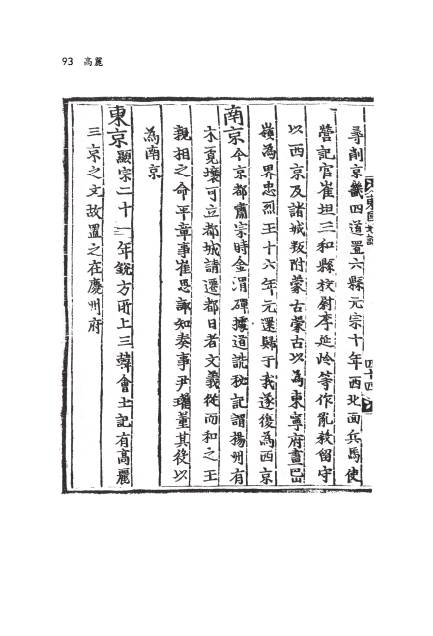 93 高麗
尋削京畿四道置六縣元宗十年西北面兵馬使
營記官崔坦三和縣校尉李延岭等作亂殺留守
以西京及諸城叛附蒙古蒙古以為東寧府畫岊
嶺為界忠烈王十六年元還歸于我遂復為西京
南京今京都肅宗時金渭磾據道詵秘記謂楊州有
木覓壤可立都城請遷都日者文義從而和之王
親相之命平章事崔思諏知奏事尹瓘董其役以
為南京
東京顯宗二十一年銳方所上三韓會土記有高麗
三京之文故置之在慶州府